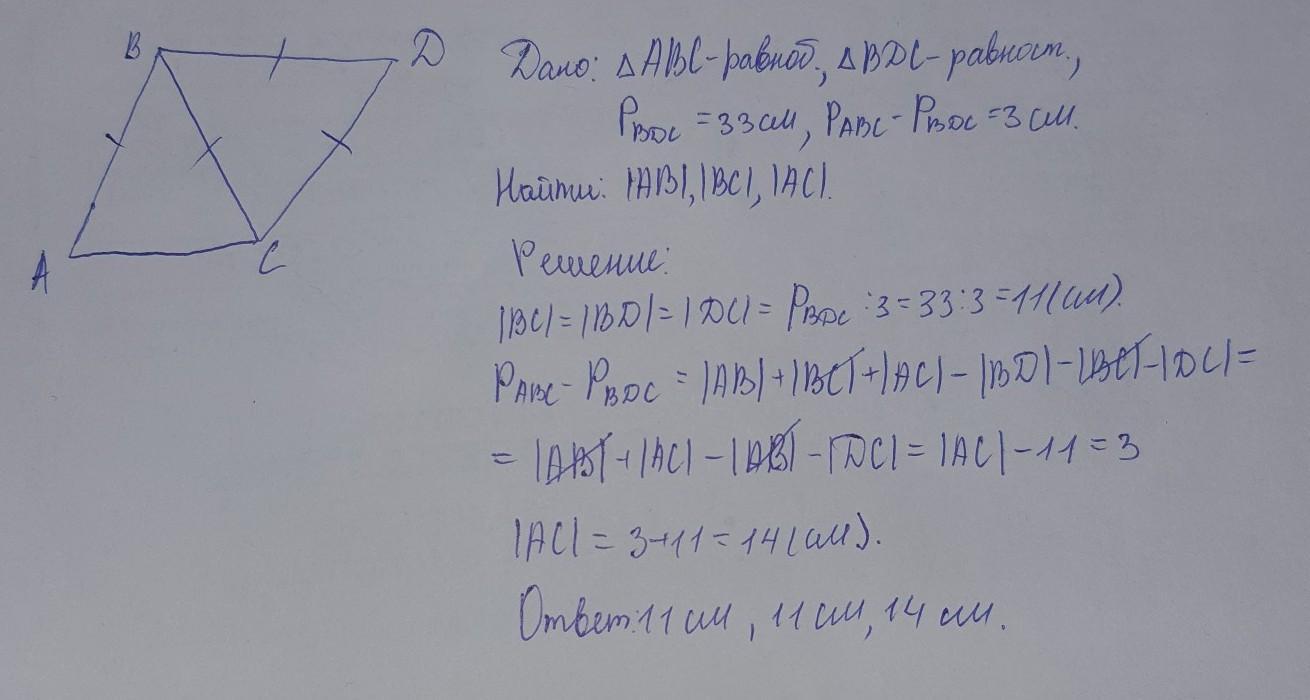 B D
A C
Дано: △ABC-равноб., △BDC-равност.,
P_BDC = 33см, P_ABC - P_BDC = 3 см.
Найти: |AB|, |BC|, |AC|.
Решение:
|BC| = |BD| = |DC| = P_BDC : 3 = 33 : 3 = 11(см).
P_ABC - P_BDC = |AB| + |BC| + |AC| - |BD| - |BC| - |DC| =
= |AB| + |AC| - |AB| - |DC| = |AC| - 11 = 3
|AC| = 3+11 = 14(см).
Ответ: 11 см, 11 см, 14 см.